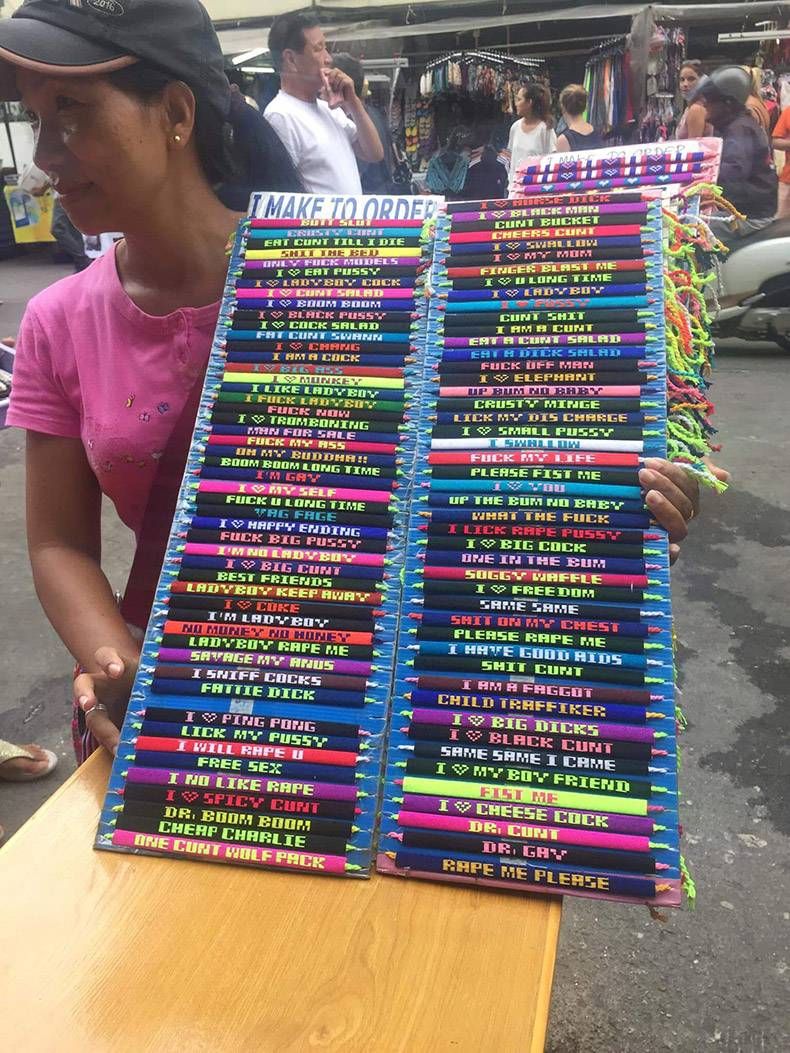 2016
I MAKE TO ORDER
BUTT SLUT
CRUSTY CUNT
EAT CUNT TILL I DIE
SHIT THE BED
ONLY FUCK MODELS
I ♡ EAT PUSSY
I ♡ LADYBOY COCK
I ♡ CUNT SALAD
I ♡ BOOM BOOM
I ♡ BLACK PUSSY
I ♡ COCK SALAD
FAT CUNT SWANN
I ♡ CHANG
I AM A COCK
I ♡ BIG ASS
I ♡ MONKEY
I LIKE LADYBOY
I FUCK LADYBOY
FUCK NOW
I ♡ TROMBONING
MAN FOR SALE
FUCK MY ASS
OH MY BUDDHA!!
BOOM BOOM LONG TIME
I'M GAY
I ♡ MY SELF
FUCK U LONG TIME
VAG FACE
I ♡ HAPPY ENDING
FUCK BIG PUSSY
I'M NO LADYBOY
I ♡ BIG CUNT
BEST FRIENDS
LADYBOY KEEP AWAY
I ♡ COKE
I'M LADYBOY
NO MONEY NO HONEY
LADYBOY RAPE ME
SAVAGE MY ANUS
I SNIFF COCKS
FATTIE DICK
I ♡ PING PONG
LICK MY PUSSY
I WILL RAPE U
FREE SEX
I NO LIKE RAPE
I ♡ SPICY CUNT
DR. BOOM BOOM
CHEAP CHARLIE
ONE CUNT WOLF PACK
I MAKE TO ORDER
I ♡ HORSE DICK
I ♡ BLACK MAN
CUNT BUCKET
CHEERS CUNT
I ♡ SWALLOW
I ♡ MY MOM
FINGER BLAST ME
I ♡ U LONG TIME
I ♡ LADYBOY
I ♡ PUSSY
CUNT SHIT
I AM A CUNT
EAT A CUNT SALAD
EAT A DICK SALAD
FUCK OFF MAN
I ♡ ELEPHANT
UP BUM NO BABY
CRUSTY MINGE
LICK MY DIS CHARGE
I ♡ SMALL PUSSY
I SWALLOW
FUCK MY LIFE
PLEASE FIST ME
I ♡ YOU
UP THE BUM NO BABY
WHAT THE FUCK
I LICK RAPE PUSSY
I ♡ BIG COCK
ONE IN THE BUM
SOGGY WAFFLE
I ♡ FREEDOM
SAME SAME
SHIT ON MY CHEST
PLEASE RAPE ME
I HAVE GOOD AIDS
SHIT CUNT
I AM A FAGGOT
CHILD TRAFFIKER
I ♡ BIG DICKS
I ♡ BLACK CUNT
SAME SAME I CAME
I ♡ MY BOY FRIEND
FIST ME
I ♡ CHEESE COCK
DR. CUNT
DR. GAY
RAPE ME PLEASE